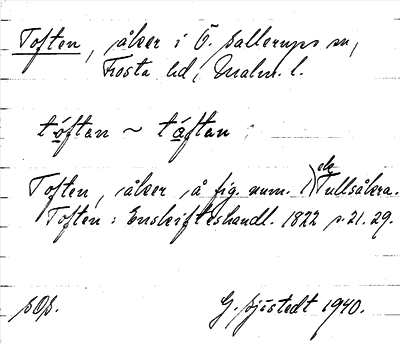 Toften, åker i Ö. Sallerups sn,
Frosta hd, Malm. l.
tóftan ~ táftan
Toften, åker å fig. num. 1) Tullsåkra.
Toften: Enskifteshandl. 1822 s. 21. 29.
G. Sjöstedt 1940.